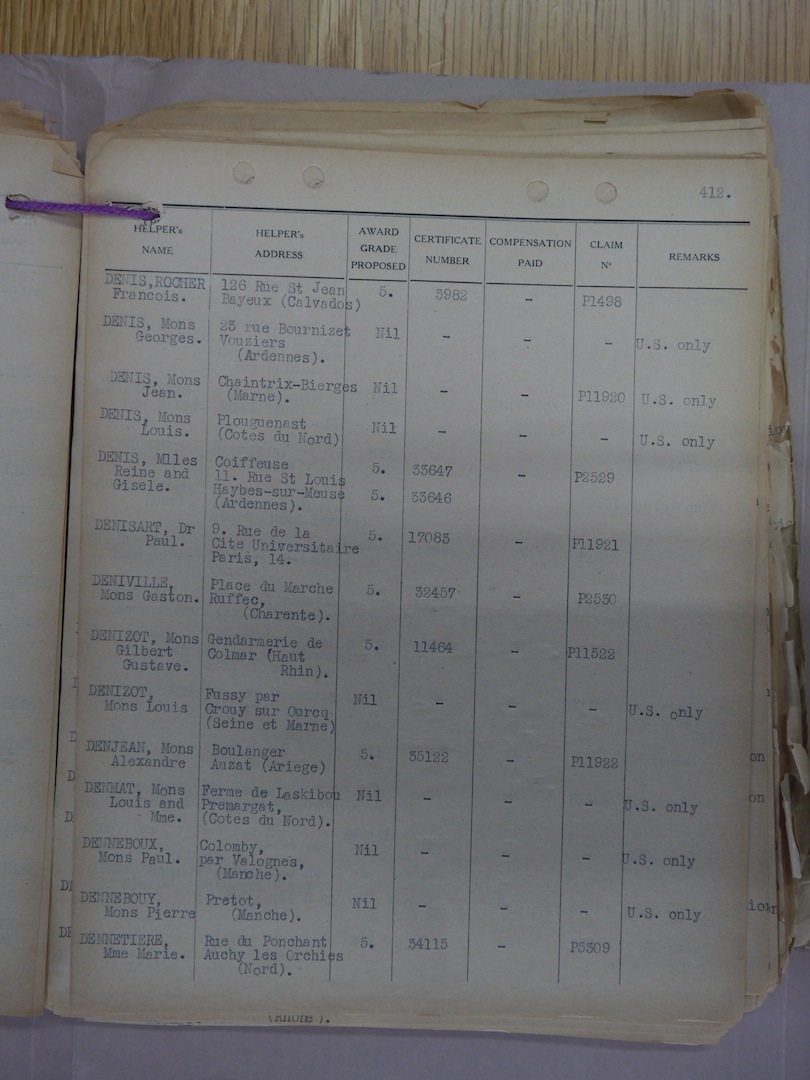 412.
HELPER's NAME HELPER's ADDRESS AWARD GRADE PROPOSED CERTIFICATE NUMBER COMPENSATION PAID CLAIM Nº REMARKS
DENIS,ROCHER 126 Rue St Jean 5. 3982 - P1498
Francois. Bayeux (Calvados)
DENIS, Mons 23 rue Bournizet Nil - - - U.S. only
Georges. Vouziers
(Ardennes).
DENIS, Mons Chaintrix-Bierges Nil - - P11920 U.S. only
Jean. (Marne).
DENIS, Mons Plouguenast Nil - - - U.S. only
Louis. (Cotes du Nord)
DENIS, Mlles Coiffeuse 5. 33647 - P2529
Reine and 11. Rue St Louis
Gisele. Haybes-sur-Meuse 5. 33646
(Ardennes).
DENISART, Dr 9. Rue de la 5. 17083 - P11921
Paul. Cite Universitaire
Paris, 14.
DENIVILLE, Place du Marche 5. 32457 - P2530
Mons Gaston. Ruffec,
(Charente).
DENIZOT, Mons Gendarmerie de 5. 11464 - P11522
Gilbert Colmar (Haut
Gustave. Rhin).
DENIZOT, Fussy par Nil - - - U.S. only
Mons Louis Crouy sur Ourcq
(Seine et Marne)
DENJEAN, Mons Boulanger 5. 35122 - P11922
Alexandre Auzat (Ariege)
DENMAT, Mons Ferme de Laskibou Nil - - - U.S. only
Louis and Premargat,
Mme. (Cotes du Nord).
DENNEBOUX, Colomby, Nil - - - U.S. only
Mons Paul. par Valognes,
(Manche).
DENNEBOUY, Pretot, Nil - - - U.S. only
Mons Pierre (Manche).
DENNETIERE, Rue du Ponchant 5. 34115 - P5309
Mme Marie. Auchy les Orchies
(Nord).
(Rhone).